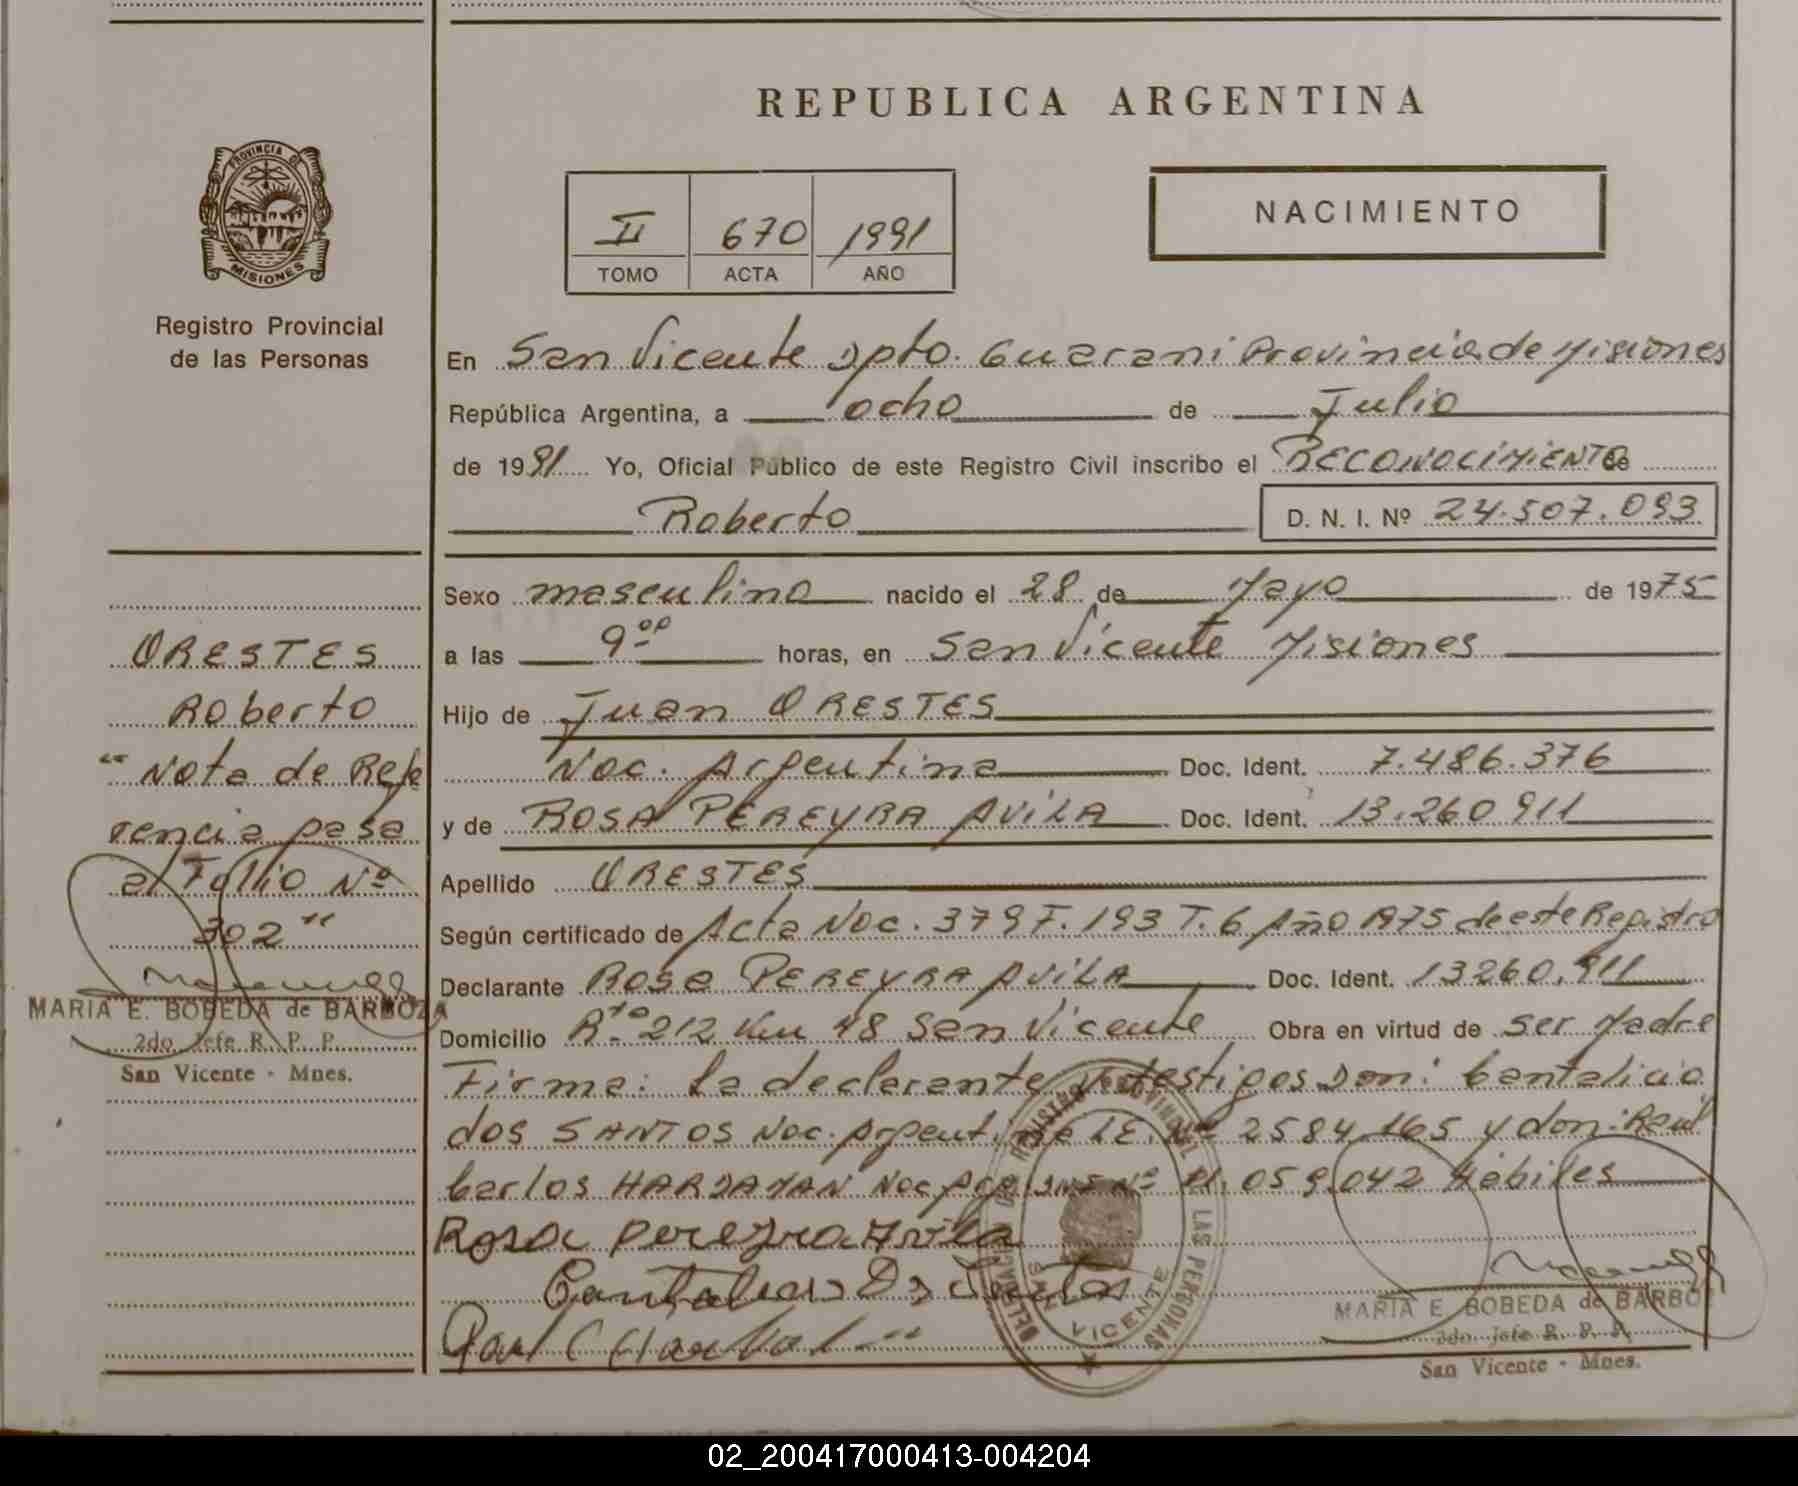 REPUBLICA ARGENTINA
PROVINCIA DE
MISIONES
Registro Provincial
de las Personas
II 670 1991
TOMO ACTA AÑO
NACIMIENTO
En San Vicente Dpto. Guarani Provincia de Misiones
República Argentina, a ocho de Julio
de 1991 Yo, Oficial Público de este Registro Civil inscribo el RECONOCIMIENTO de
Roberto D. N. I. Nº 24.507.093
Sexo masculino nacido el 28 de Mayo de 1975
a las 9 00 horas, en San Vicente Misiones
Hijo de Juan ORESTES
Nac. Argentina Doc. Ident. 7.486.376
y de ROSA PEREYRA AVILA Doc. Ident. 13.260 911
Apellido ORESTES
Según certificado de Acta Nac. 379 F. 193 T. 6 Año 1975 de este Registro
Declarante Rosa PEREYRA AVILA Doc. Ident. 13260.911
Domicilio 212 Km 48 San Vicente Obra en virtud de ser Madre
Firma: la declarante y testigos Don: Cantalicio
dos SANTOS Nac. Argentina L.E. Nº 2584165 y don: Raul
Carlos Nac Arg DNI Nº 11.059.042 Hábiles
Rosa Pereyra Avila
Cantalicio Dos Santos
REGISTRO PROVINCIAL DE LAS PERSONAS
SAN VICENTE
MARIA E. BOBEDA de BARBOZ
2do. Jefe R. P. P.
San Vicente - Mnes.
ORESTES
Roberto
"Nota de Refe
rencia pasa
al Follio Nº
302"
MARIA E. BOBEDA de BARBOZA
2do. Jefe R. P. P.
San Vicente - Mnes.
02_200417000413-004204